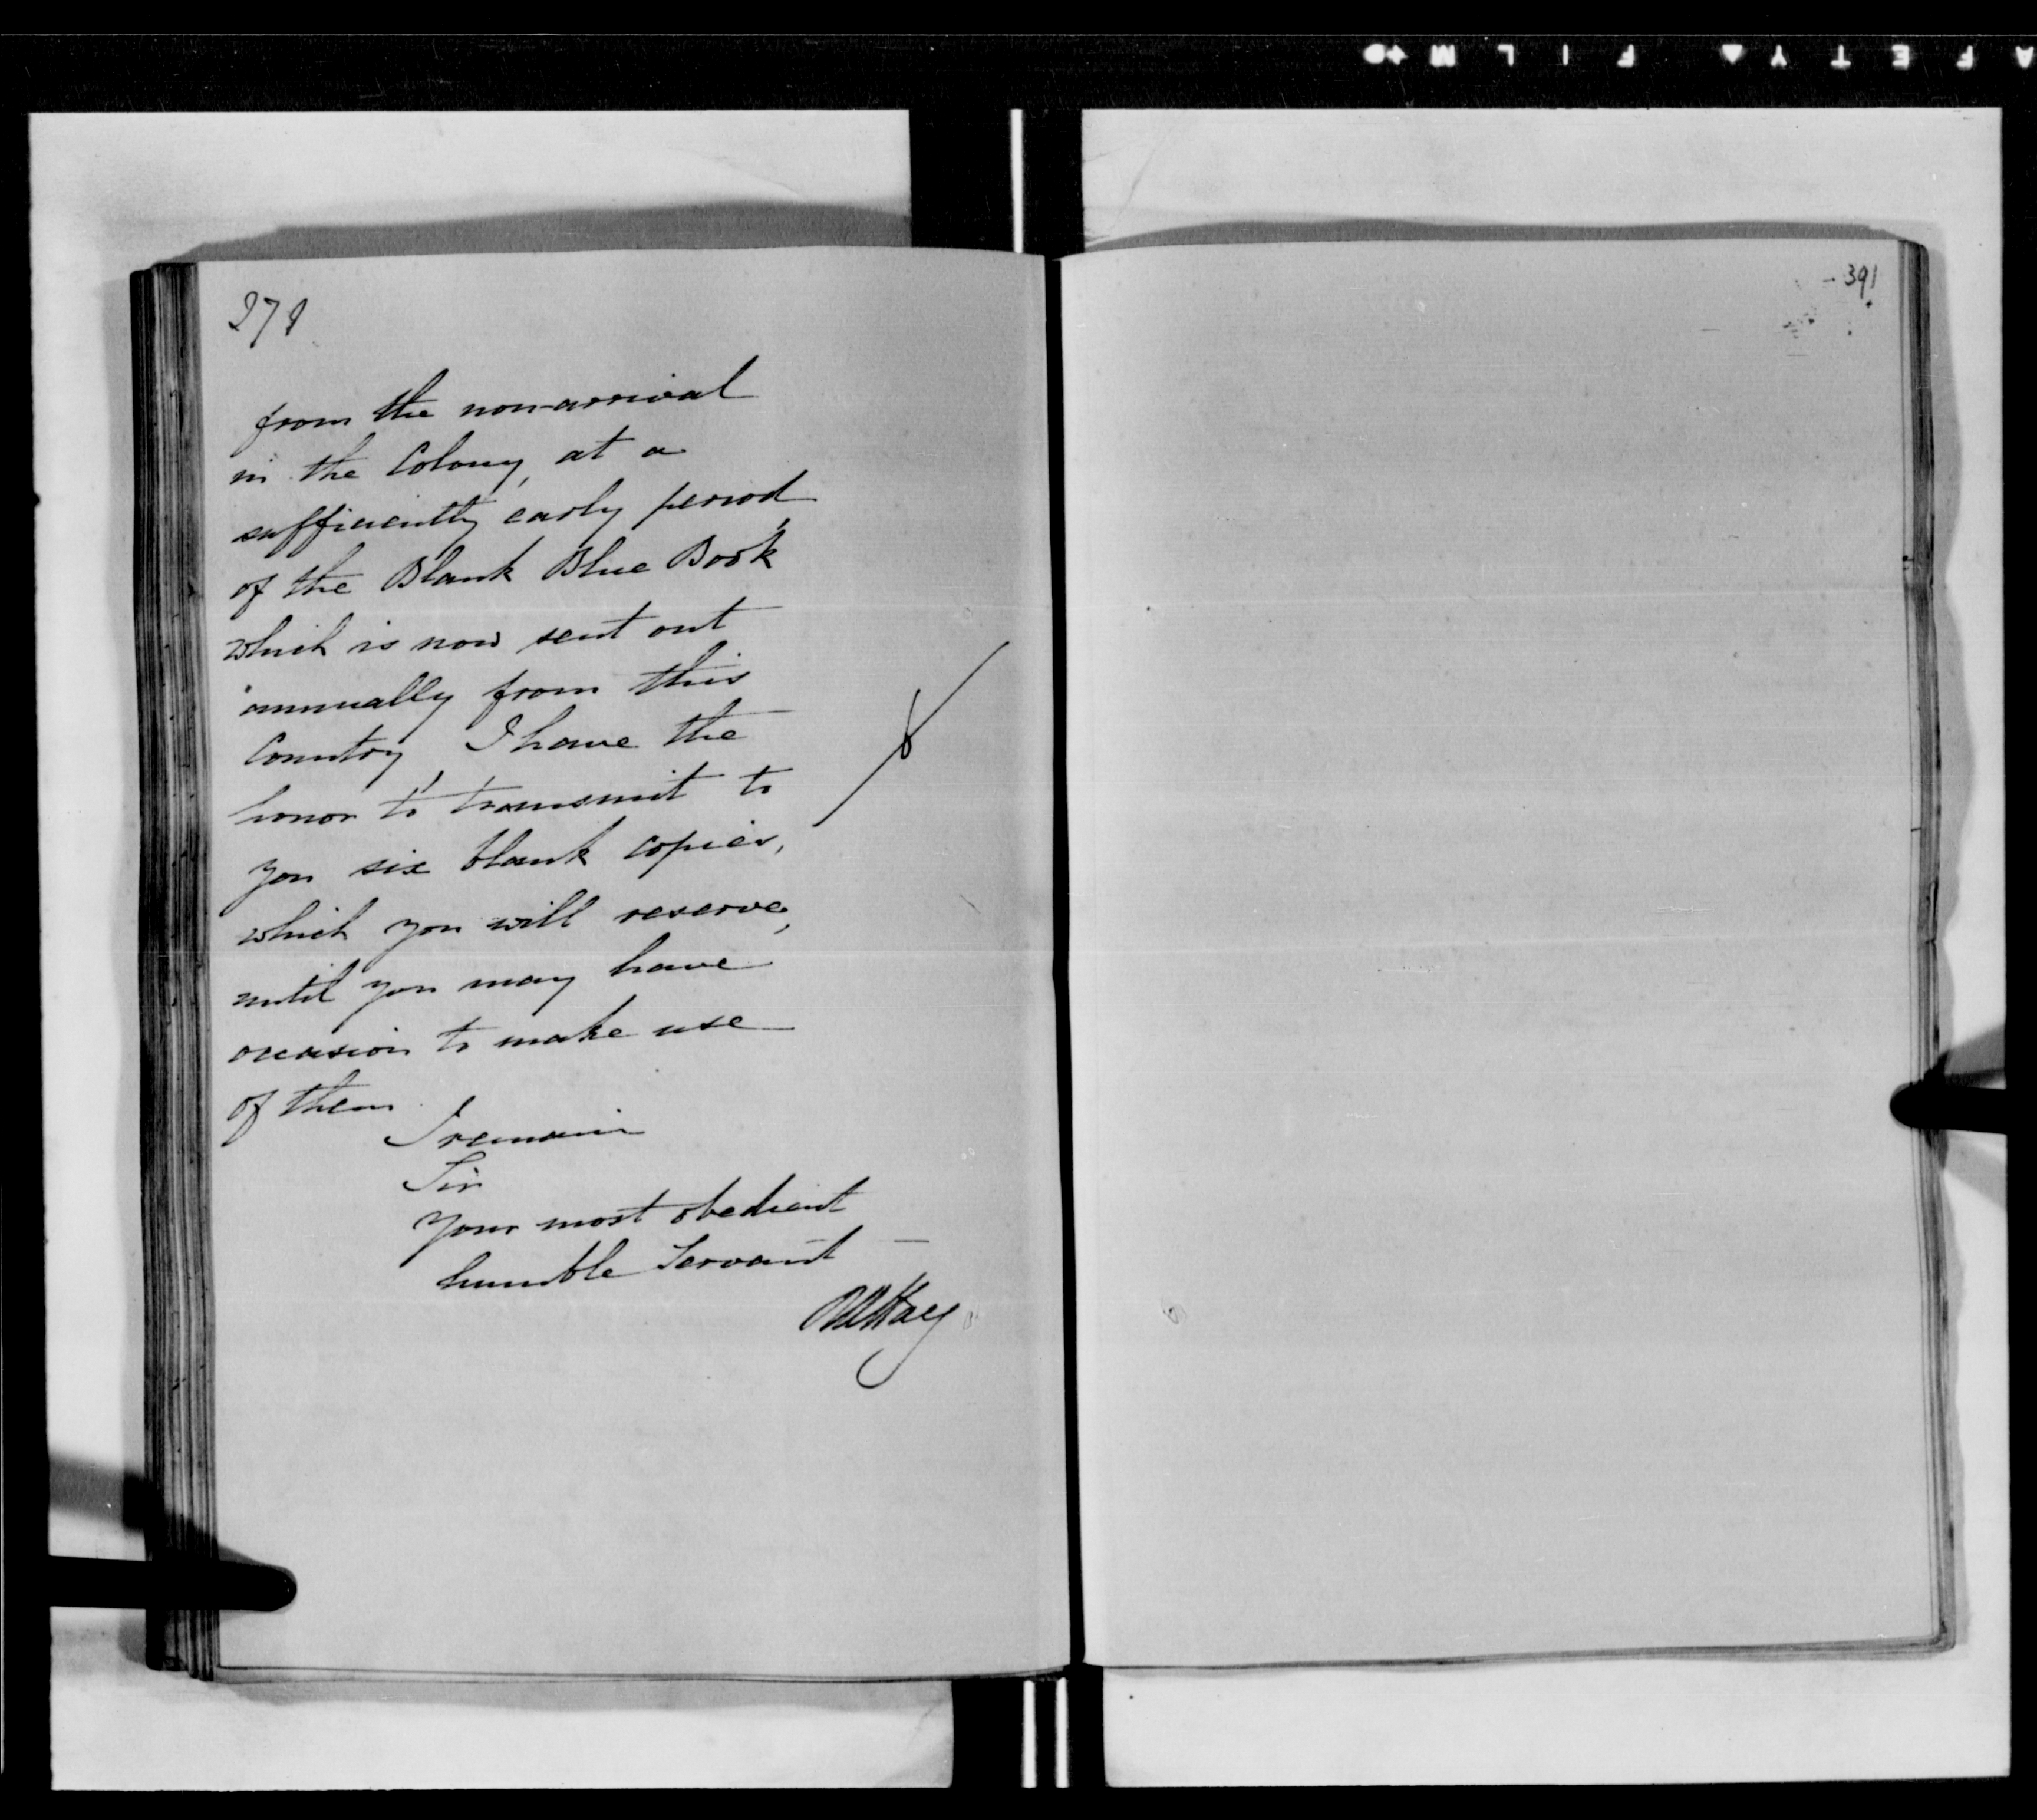 from the non-arrival
in the Colony, at a
sufficiently early period,
of the Blank Blue Book
which is now sent out
annually from this
Country, I have the
honor to transmit to
you six blank copies,
which you will reserve,
until you may have
occasion to make use
of them.
I remain
Sir
Your most obedient
humble Servant
RWHay
391
SAFETY FILM